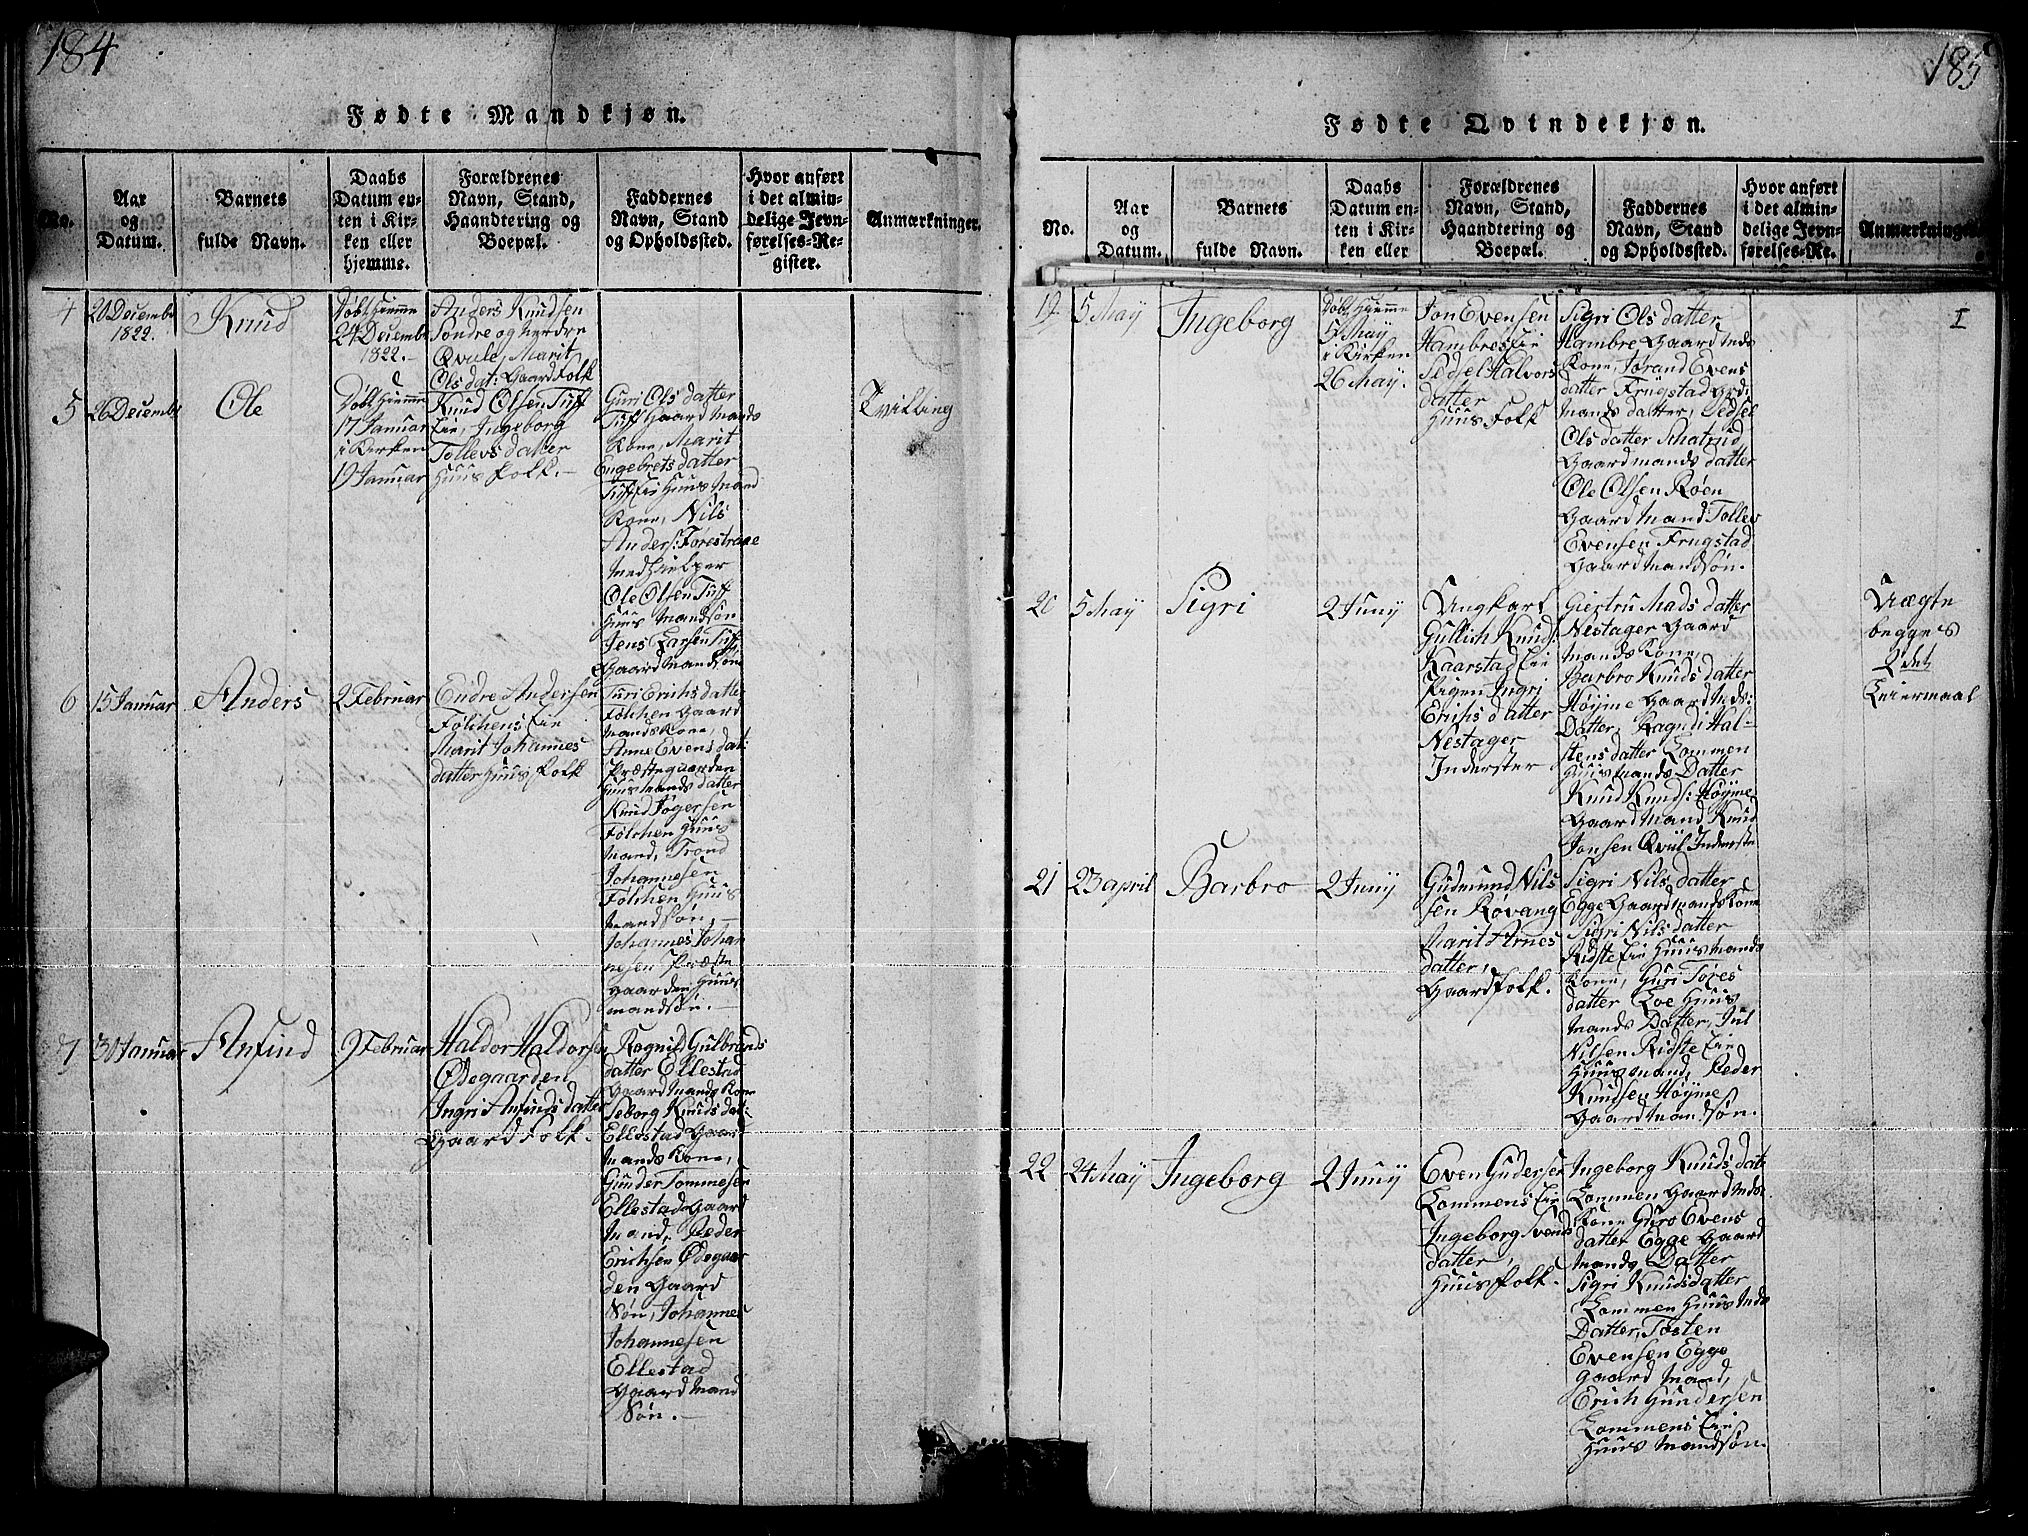 184
Fødte Mandkjøn.
No.
Aar
og
Datum.
Barnets
fulde Navn.
Daabs
Datum en-
ten i Kir-
ken eller
hjemme.
Forældrenes
Navn, Stand,
Haandtering og
Boepæl.
Faddernes
Navn, Stand
og Opholdssted.
Hvor anført
i det almin-
delige Jevn-
førelses-Re-
gister.
Anmærkninger.
4
20 Decembr
1822.
Knud
Døbt Hjemme
24 Decembr
1822.-
Anders Knudsen
Søndre og nordre
Qvale, Marit
Ols dat: GaardFolk
5
26 Decembr
Ole
Døbt Hjemme
17 Januar
i Kirken
19 Januar
Knud Olsen Tuff
Eie, Ingeborg
Tollevs datter
Huus Folk.-
Guri Ols datter
Tuff Gaard Mands
Kone, Marit
Engebrets datter
Tuff Eie Huus Mand
Kone, Nils
Anders: Forestrane
Medhielper
Ole Olsen Tuff
Huus Mandsøn
Jens Larsen Tuff
Gaard Mandsøn
Tvilling
6
15 Januar
Anders
2 Februar
Endre Andersen
Følchens Eie
Marit Johannes
datter Huus Folk
Turi Erichs datter
Følchen Gaard
Mands Kone,
Anne Evens dat:
Præstegaarden
Huus Mands datter
Knud
Følchen Huus
Mand, Trond
Johannesen
Følchen Huus
Mandsøn,-
Johannes Johan
nesen Præste
Gaarden Huus
Mandsøn.-
7
30 Januar
Anfind
9 Februar
Haldor Haldorsen
Ødegaarden
Ingri Anfinds datter
Gaard Folk.
Ragnild Gulbrands
datter Ellestad
Gaard Mands Kone
Seborg Knuds dat:
Ellestad Gaar
Mands Kone,
Gunder Tommesen
Ellestad Gaard
Mand, Peder
Erichsen Ødegaar
den Gaard
Søn, Johannes
Johannesen
Ellestad
Gaard Mand
Søn.-
185
Fødte Qvindekjøn.
No.
Aar
og
Datum.
Barnets
fulde Navn.
Daabs
Datum en-
ten i Kir-
ken eller
Forældrenes
Navn, Stand,
Haandtering og
Boepæl.
Faddernes
Navn, Stand
og Opholdssted.
Hvor anført
i det almin-
delige Jevn-
førelses-Re-
Anmærkninger.
19
5 May
Ingeborg
Døbt Hjemme
5 May
i Kirken
26 May.
Jon Evensen
Hambres Eie
Sedsel Halvors
datter
Huus Folk
Sigri Ols datter
Hambre Gaard Mds
Kone, Jørand Evens
datter Frugstad Grd:
Mands datter, Sedsel
Ols datter
Gaardmands datter
Ole Olsen Røen
Gaard Mand Tollev
Evensen Frugstad
Gaard Mandsøn.
I
20
5 May
Sigri
2 Juny
Ungkarl
Gullich Knud:
Kaarstad Eie
Pigen Ingri
Erichs datter
Nestager
Inderster
Giertru Mads datter
Nestager Gaard
Mands Kone,
Barbro Knuds datter
Høyme Gaard Mds:
Datter, Ragnd: Hal-
stens datter Lommen
Huus Mands Datter
Knud Knuds: Høyme
Gaard Mand Knud
Jonsen Qvul Inderste
Uægte
begges
2det
Leiermaal
21
23 april
Barbro
2 Juny
Gudmund Nils
sen Røvang
Marit Arnes
datter,
Gaard Folk.
Sigri Nils datter
Egge Gaard Mands Kone
Sigri Nils datter
Ridste Eie Huus Mands
Kone, Guri Tores
datter Loe Huus
Mands Datter, Jul
Nilsen Ridste Eie
Huus Mand, Peder
Knudsen Høyme
Gaard Mandsøn.
22
24 May
Ingeborg
2 Juny
Even Gudersen
Lommens Eie
Ingeborg Svends
datter,
Huus Folk.
Ingeborg Knuds dat
Lommen Gaard Mds
Kone Guro Evens
datter Egge Gaard
Mands Datter
Sigri Knudsdatter
Lommen Huus Mds
Datter, Tosten
Evensen Egge
Gaard Mand,
Erich Gundersen
Lommens Eie
Huus Mandsøn.